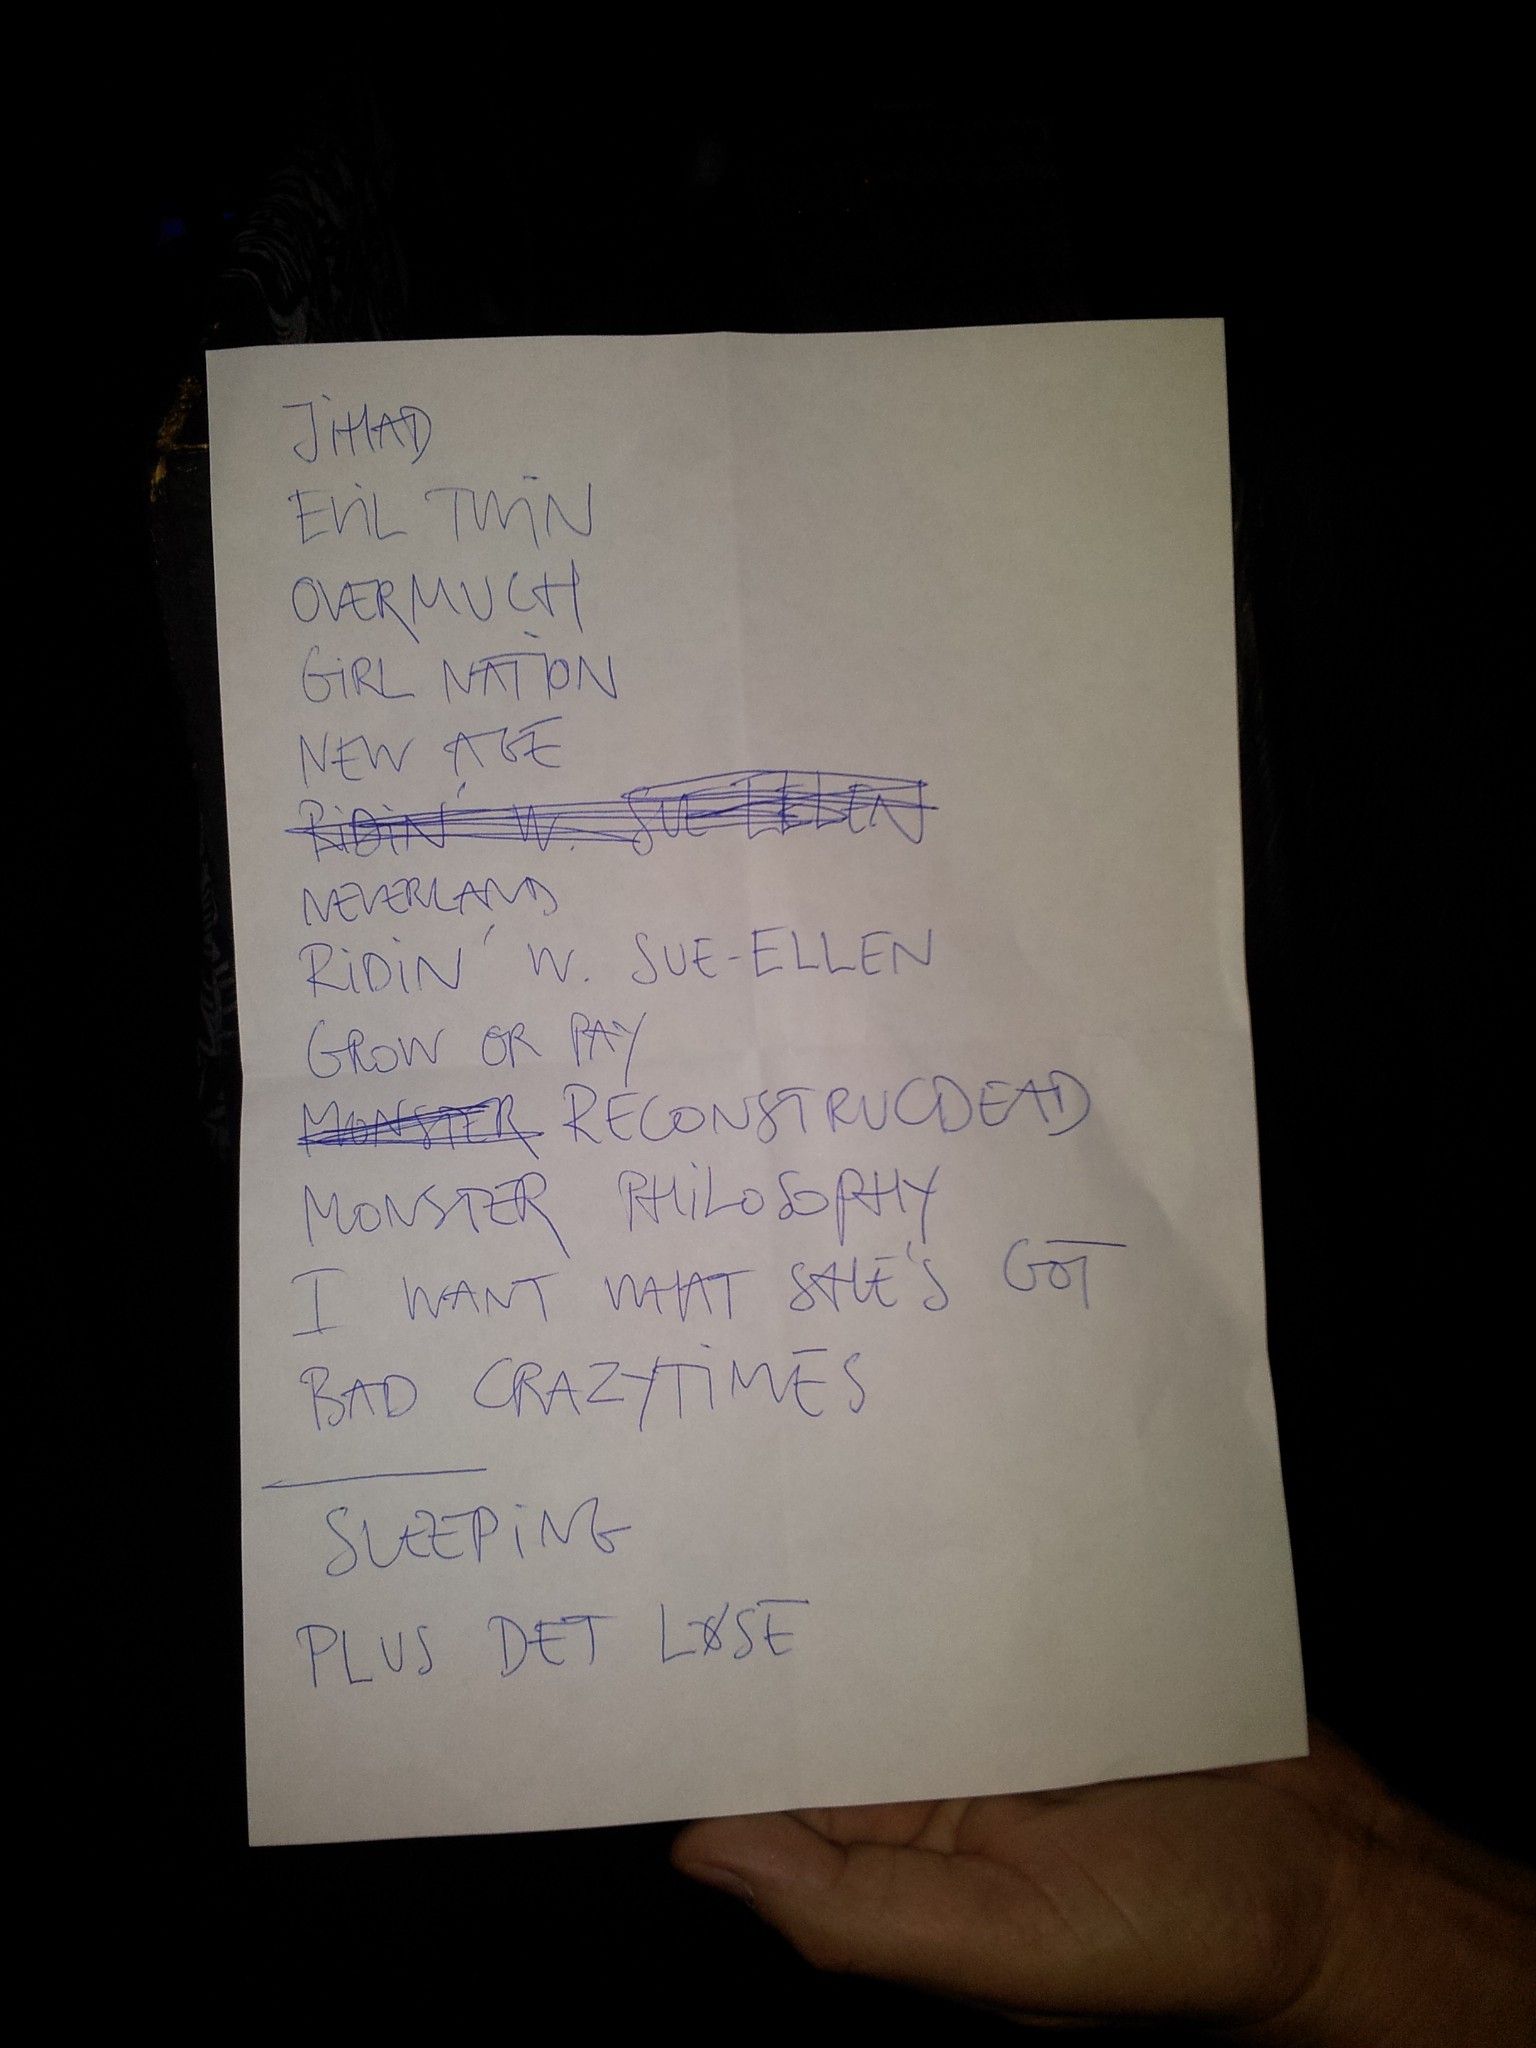 JIHAD
EVIL TWIN
OVERMUCH
GIRL NATION
NEW AGE
RIDIN' W. SUE ELLEN
NEVERLAND
RIDIN' W. SUE-ELLEN
GROW OR PAY
MONSTER RECONSTRUCDEAD
MONSTER PHILOSOPHY
I WANT WHAT SHE'S GOT
BAD CRAZYTIMES
SLEEPING
PLUS DET LØSE